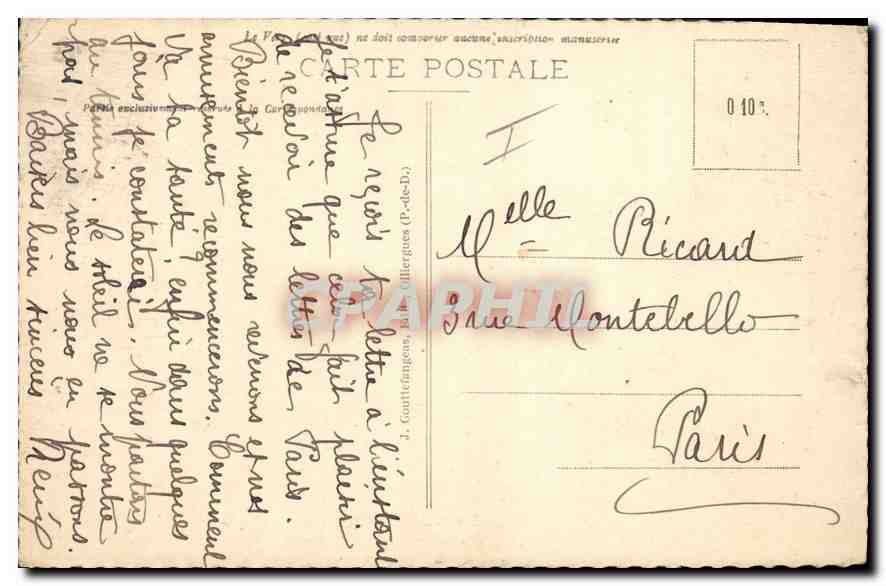 Le Verso (seul que) ne doit comporter aucune inscription manuscrite
CARTE POSTALE
Partie exclusivement réservée à la Correspondance
Je reçois ta lettre à l'instant
Je t'assure que cela fait plaisir
de recevoir des lettres de Paris.
Bientôt nous nous reverrons et nos
amusements recommencerons. Comment
va ta santé? enfin dans quelques
jours je constaterai. Vous partez
au tennis. Le soleil ne se montre
pas, mais nous nous en passons.
Baisers bien sincères
J. Gouttefangeas, Olliergues (P.-de-D.)
I
0 10 c.
Melle Ricard
3 rue Montebello
Paris
CPAPHIL